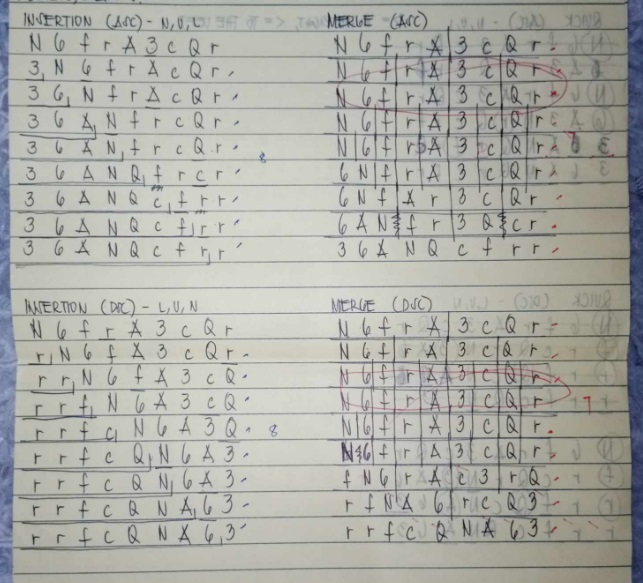 INSERTION (ASC) - N, U, L
N 6 f r A 3 c Q r
3, N 6 f r A c Q r
3 6, N f r A c Q r
3 6 A, N f r c Q r
3 6 A N, f r c Q r
3 6 A N Q, f r c r
3 6 A N Q c, f r r
3 6 A N Q c f, r r
3 6 A N Q c f r, r
8
MERGE (ASC)
N 6 f r A | 3 c Q r
N 6 f | r A | 3 c | Q r
N 6 | f | r | A | 3 | c | Q | r
N 6 | f | r | A | 3 | c | Q | r
N | 6 | f | r | A | 3 | c | Q | r
6 N | f | r | A | 3 | c | Q | r
6 N f | A r | 3 c | Q r
6 A N f r | 3 Q c r
3 6 A N Q c f r r
INSERTION (DSC) - L, U, N
N 6 f r A 3 c Q r
r, N 6 f A 3 c Q
r r, N 6 f A 3 c Q
r r f, N 6 A 3 c Q
r r f c, N 6 A 3 Q
r r f c Q, N 6 A 3
r r f c Q N, 6 A 3
r r f c Q N A, 6 3
r r f c Q N A 6, 3
8
MERGE (DSC)
N 6 f r A | 3 c Q r
N 6 f | r A | 3 c | Q r
N 6 | f | r | A | 3 | c | Q | r
N 6 | f | r | A | 3 | c | Q | r
N | 6 | f | r | A | 3 | c | Q | r
N 6 | f | r | A | 3 | c | Q | r
f N 6 | r A | c 3 | r Q
r f N A 6 | r c Q 3
r r f c Q N A 6 3
7